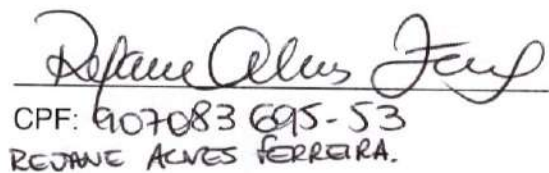 Rejane Alves Ferreira
CPF: 907083695-53
REJANE ALVES FERREIRA.